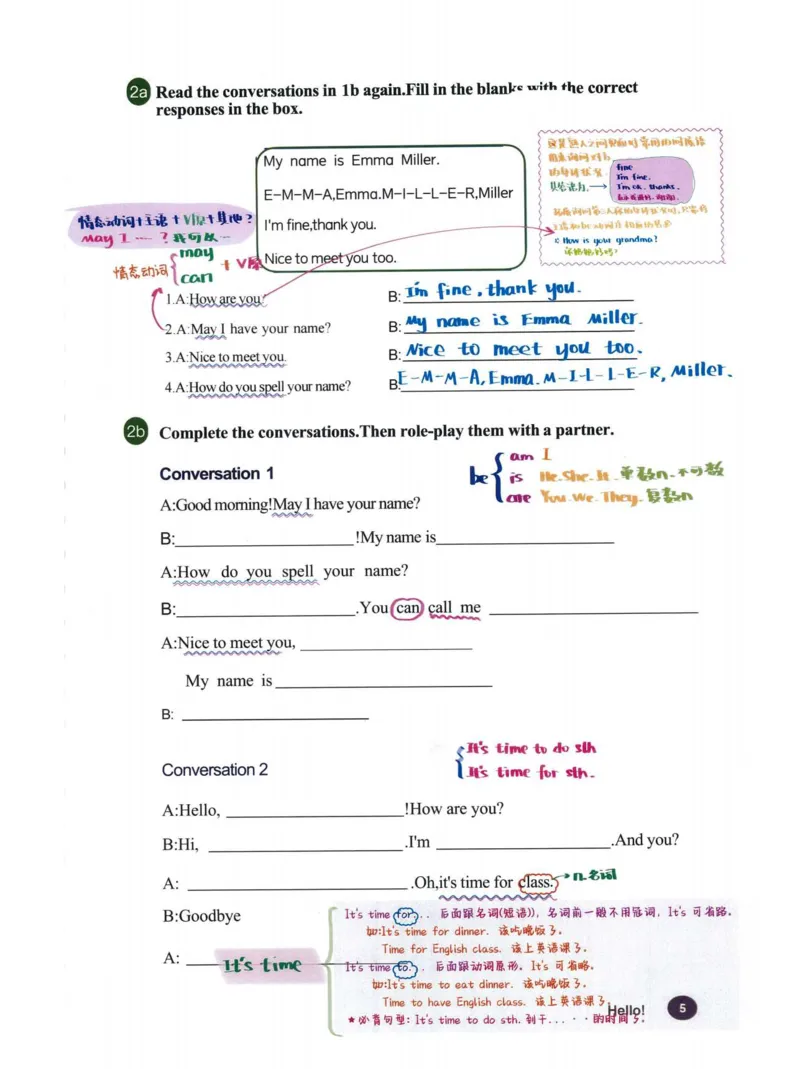 2a Read the conversations in 1b again.Fill in the blanks with the correct
responses in the box.
My name is Emma Miller.
E-M-M-A,Emma.M-I-L-L-E-R,Miller
I'm fine,thank you.
Nice to meet you too.
fine
I'm fine.
I'm ok. thanks.
其答语为: →
How is your grandma?
情态动词+主语+V原+其他?
May I ... ?
情态动词 may can + V原
1.A:How are you?
B: I'm fine, thank you.
2.A:May I have your name?
B: My name is Emma Miller.
3.A:Nice to meet you.
B: Nice to meet you too.
4.A:How do you spell your name?
B: E-M-M-A, Emma. M-I-L-L-E-R, Miller.
2b Complete the conversations.Then role-play them with a partner.
be am I
is He.She.It.单数n.不可数
are You.We.They.复数n
Conversation 1
A:Good morning!May I have your name?
B:____________!My name is____________
A:How do you spell your name?
B:____________.You can call me ____________
A:Nice to meet you, ____________
My name is ____________
B: ____________
It's time to do sth
It's time for sth.
Conversation 2
A:Hello, ____________!How are you?
B:Hi, ____________.I'm ____________.And you?
A: ____________.Oh,it's time for class. → n.名词
B:Goodbye
A: ____________
It's time
It's time for... 后面跟名词(短语)), 名词前一般不用冠词, It's 可省略.
如:It's time for dinner. 该吃晚饭了.
Time for English class. 该上英语课了.
It's time to... 后面跟动词原形. It's 可省略.
如:It's time to eat dinner. 该吃晚饭了.
Time to have English class. 该上英语课了.
★必背句型: It's time to do sth. 到干... ··的时间了.
Hello! 5